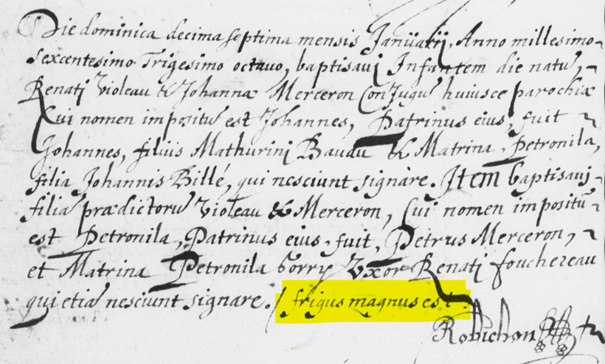 Die dominica decima septima mensis Januarij, Anno millesimo
sexcentesimo Trigesimo octavo, baptisavj Infantem die natu,
Renatj Violeau & Johannæ Merceron Conjugu huiusce parochiæ
Cui nomen impositu est Johannes, Patrinus eius, fuit
Johannes, filius Mathurinj Baudu & Matrina, Petronila,
filia Johannis Billé, qui nesciunt signare. Item baptisavj
filia prædictoru Violeau & Merceron, Cui nomen impositu
est Petronila, Patrinus eius, fuit, Petrus Merceron,
et Matrina Petronila borry Vxor Renatj fouchereau
qui etia nesciunt signare. / frigus magnus est
Robichon